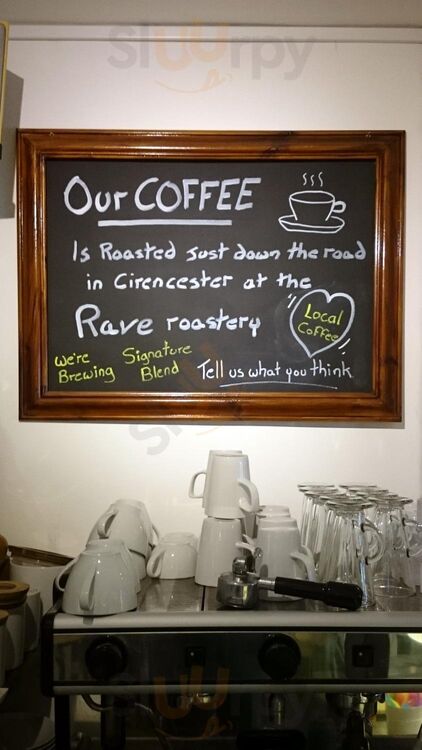 slUUrpy
OUR COFFEE
Is Roasted Just down the road
in Cirencester at the
Rave roastery
Local
Coffee
We're
Brewing
Signature
Blend
Tell us what you think
slUUrpy